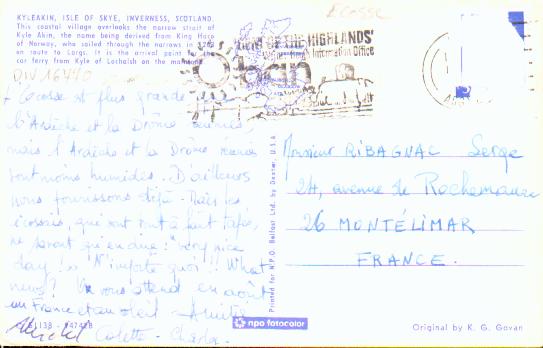 KYLEAKIN, ISLE OF SKYE, INVERNESS, SCOTLAND.
This coastal village overlooks the narrow strait of
Kyle Akin, the name being derived from King Haco
of Norway, who sailed through the narrows in 1263
en route to Largs. It is the arrival point for the
car ferry from Kyle of Lochalsh on the mainland.
DIN 16440
Ecosse
OF THE HIGHLANDS'
Information Office
Oban
L'Ecosse est plus grande
l'Ardèche et la Drôme réunies,
mais l'Ardèche et la Drôme
sont moins humides. D'ailleurs
nous fournissons déjà. Mais les
écossais, qui sont tout à fait tapés,
ne savent qu'en dire : "very nice
day !" N'importe quoi !! What
news? On vous attend en août
en France et au soleil. Amitiés
Michel Colette - Charles.
Printed for N.P.O. Belfast Ltd. by Dexter, U.S.A
Monsieur RIBAGNAC Serge
24, avenue de Rochemaure
26 MONTÉLIMAR
FRANCE.
npo fotocolor
Original by K. G. Govan